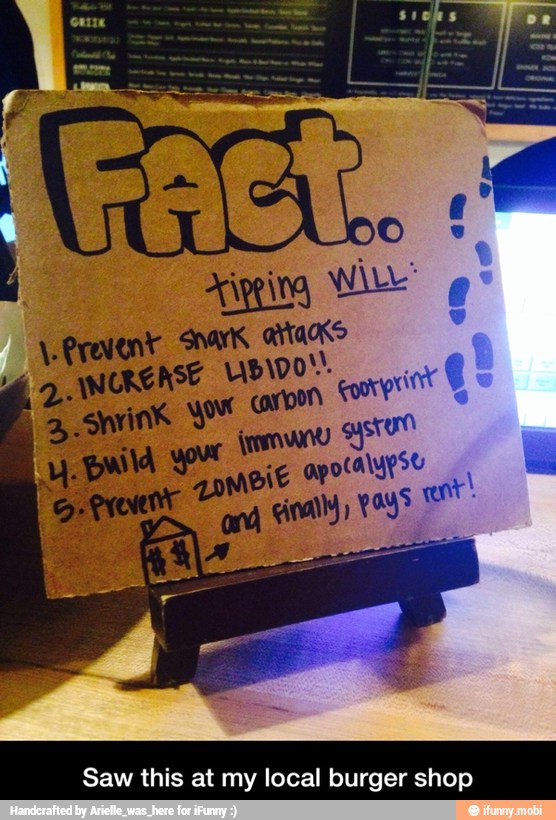 GREEK
SIDES
FACT..
tipping WILL:
1. Prevent shark attacks
2. INCREASE LIBIDO!!
3. Shrink your carbon footprint
4. Build your immune system
5. Prevent ZOMBiE apocalypse
and finally, pays rent!
$ $
Saw this at my local burger shop
Handcrafted by Arielle_was_here for iFunny :)
ifunny.mobi